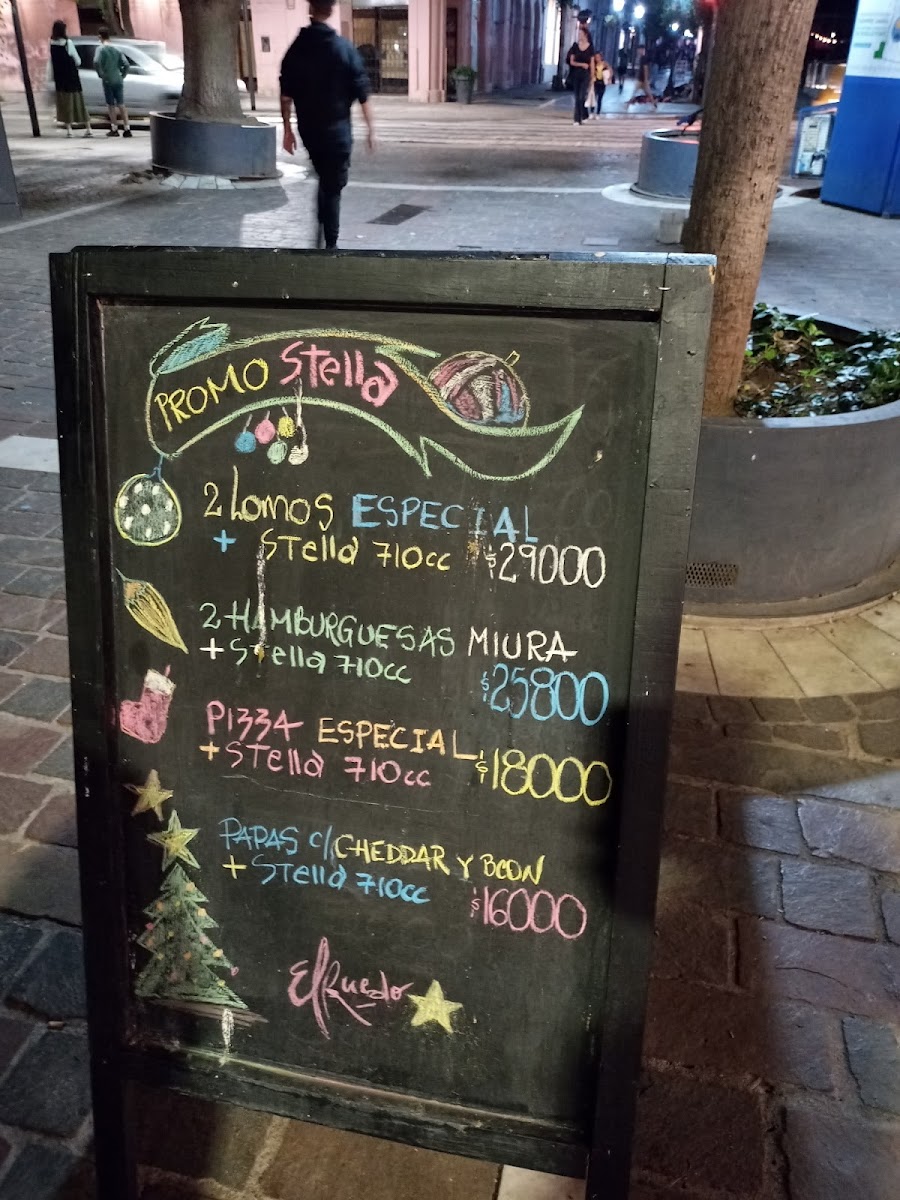 PROMO Stella
2 Lomos ESPECIAL
+ Stella 710cc $29000
2 HAMBURGUESAS MIURA
+ Stella 710cc $25800
PIZZA ESPECIAL
+ Stella 710cc $18000
PAPAS c/ CHEDDAR Y BCON
+ Stella 710cc $16000
El Ruedo